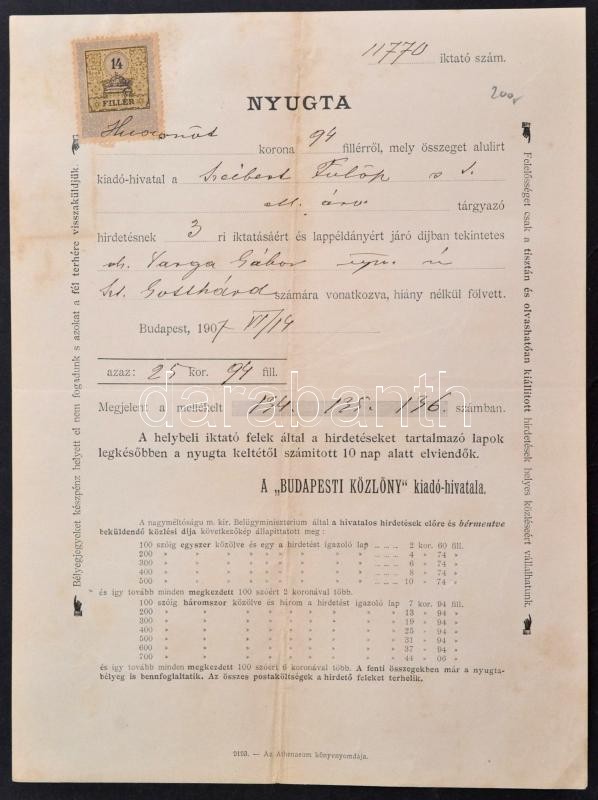 11770 iktató szám.
200,-
14
FILLÉR
NYUGTA
Huszonöt korona 94 fillérről, mely összeget alulirt
kiadó-hivatal a Fülöp s t.
áru tárgyazó
hirdetésnek 3 ri iktatásáért és lappéldányért járó díjban tekintetes
Varga Gábor
Szt. Gotthárd számára vonatkozva, hiány nélkül fölvett.
Budapest, 1907 VI/14
azaz: 25 kor. 94 fill.
Megjelent a mellékelt 134. 135. 136. számban.
darabanth
A helybeli iktató felek által a hirdetéseket tartalmazó lapok
legkésőbben a nyugta keltétől számitott 10 nap alatt elviendők.
A „BUDAPESTI KÖZLÖNY" kiadó-hivatala.
A nagyméltóságu m. kir. Belügyminiszterium által a hivatalos hirdetések előre és bérmentve
beküldendő közlési dija következőkép állapittatott meg:
100 szóig egyszer közölve és egy a hirdetést igazoló lap .... .... 2 kor. 60 fill.
200 " " " " " " " " .... .... 4 " 74 "
300 " " " " " " " " .... .... 6 " 74 "
400 " " " " " " " " .... .... 8 " 74 "
500 " " " " " " " " .... .... 10 " 74 "
és igy tovább minden megkezdett 100 szóért 2 koronával több.
100 szóig háromszor közölve és három a hirdetést igazoló lap 7 kor. 94 fill.
200 " " " " " " " " 13 " 94 "
300 " " " " " " " " 19 " 94 "
400 " " " " " " " " 25 " 94 "
500 " " " " " " " " 31 " 94 "
600 " " " " " " " " 37 " 94 "
700 " " " " " " " " 44 " 06 "
és igy tovább minden megkezdett 100 szóért 6 koronával több. A fenti összegekben már a nyugta-
bélyeg is bennfoglaltatik. Az összes postaköltségek a hirdető feleket terhelik.
9193. — Az Athenaeum könyvnyomdája.
Bélyegjegyeket készpénz helyett el nem fogadunk s azokat a fél terhére visszaküldjük.
Felelősséget csak a tisztán és olvashatóan kiállitott hirdetések helyes közléseért vállalhatunk.